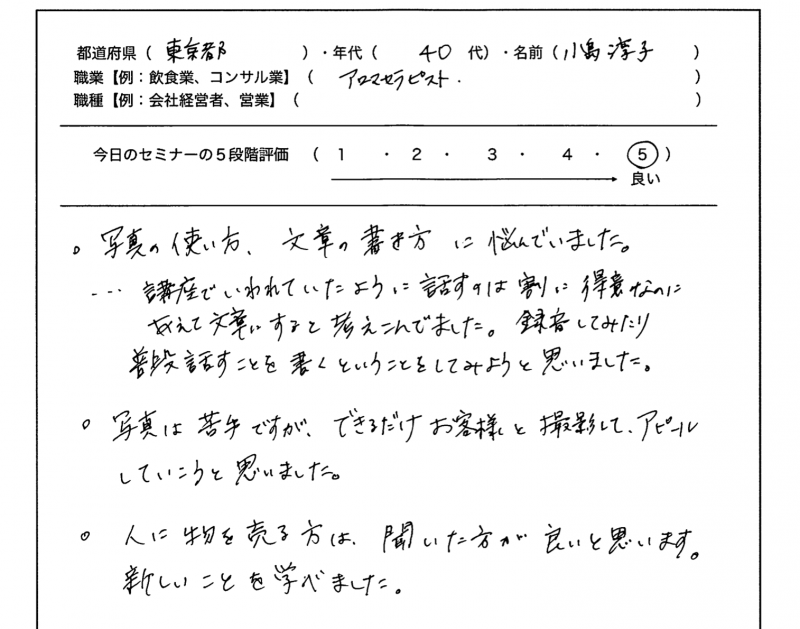 都道府県（ 東京都 ）・年代（ 40 代）・名前（小島淳子 ）
職業【例：飲食業、コンサル業】（ アロマセラピスト. ）
職種【例：会社経営者、営業】（ ）
今日のセミナーの５段階評価 （ １ ・ ２ ・ ３ ・ ４ ・ ５ ）
良い
。写真の使い方、文章の書き方に悩んでいました。
… 講座でいわれていたように話すのは割に得意なのに
あえて文章にすると考えこんでました。録音してみたり
普段話すことを書くということをしてみようと思いました。
。写真は苦手ですが、できるだけお客様と撮影して、アピール
していこうと思いました。
。人に物を売る方は、聞いた方が良いと思います。
新しいことを学べました。